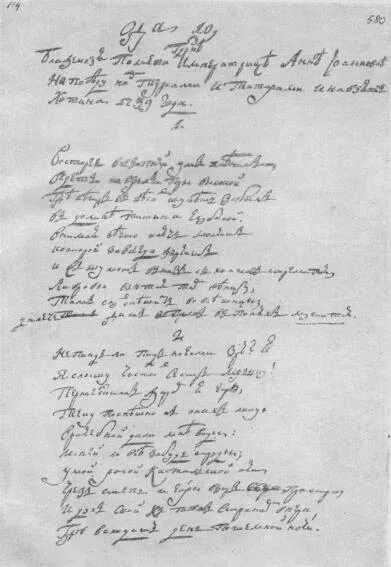 114
580
Ода
Блаженныя Памяти Императрицѣ Аннѣ Іоанновнѣ
На побѣду над Турками и Татарами и на взятіе
Хотина 1739 года.
1.
Восторгъ внезапный умъ плѣнилъ,
Ведетъ на верьхъ горы высокой,
Гдѣ вѣтръ в лѣсахъ шумѣть забылъ
В долинѣ тишина глубокой.
Внимая нѣчто ключь молчитъ
которой завсегда журчитъ
и съ шумомъ внизъ съ холмовъ стремится,
Лавровы вьются тамъ вѣнцы,
Тамъ слухъ спѣшитъ во всѣ концы,
далече дымъ в поляхъ курится.
2
Не Пиндъ ли подъ ногами зрю
Я слышу чистыхъ сестръ музыку!
Пермесскимъ жаромъ я горю,
Теку поспѣшно къ оныхъ лику
Врачебной дали мнѣ воды:
Испей и всѣ забудь труды;
Умой росой Кастальской очи,
Чрезъ степь и горы взоръ простри
И духъ свой къ тѣмъ странамъ впери
Гдѣ всходитъ день по темной ночи.